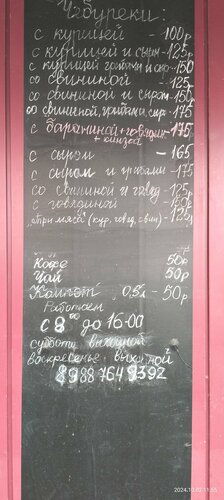 Чебуреки:
с курицей - 100р
с курицей и сыром - 125р
с курицей грибами и сыр - 150
со свининой - 125
со свининой и сыром - 150р
со свининой, грибами, сыр - 175
с бараниной + говядин - 175
+ кинза
с сыром - 165
с сыром и грибами - 175
со свининой и говяд - 125р
с говядиной - 150р
"три мяса" (кур, говяд, свин) - 125р
Кофе 50р
Чай 50р
Компот 0,5л - 50р
Работаем
с 8 00 до 16-00
суббота выходной
воскресенье выходной
8988 764 9392
2024.10.02 11:55